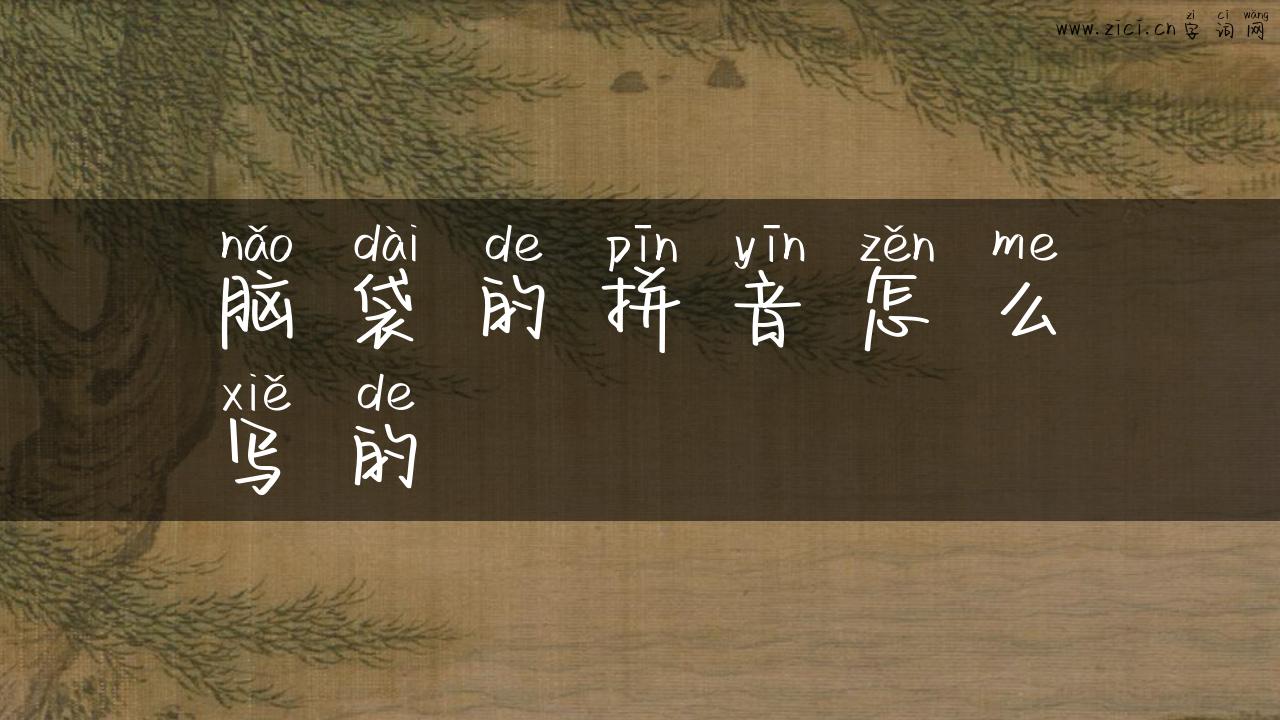 zì cí wǎng
www.zici.cn 字词网
nǎo dài de pīn yīn zěn me
脑袋的拼音怎么
xiě de
写的